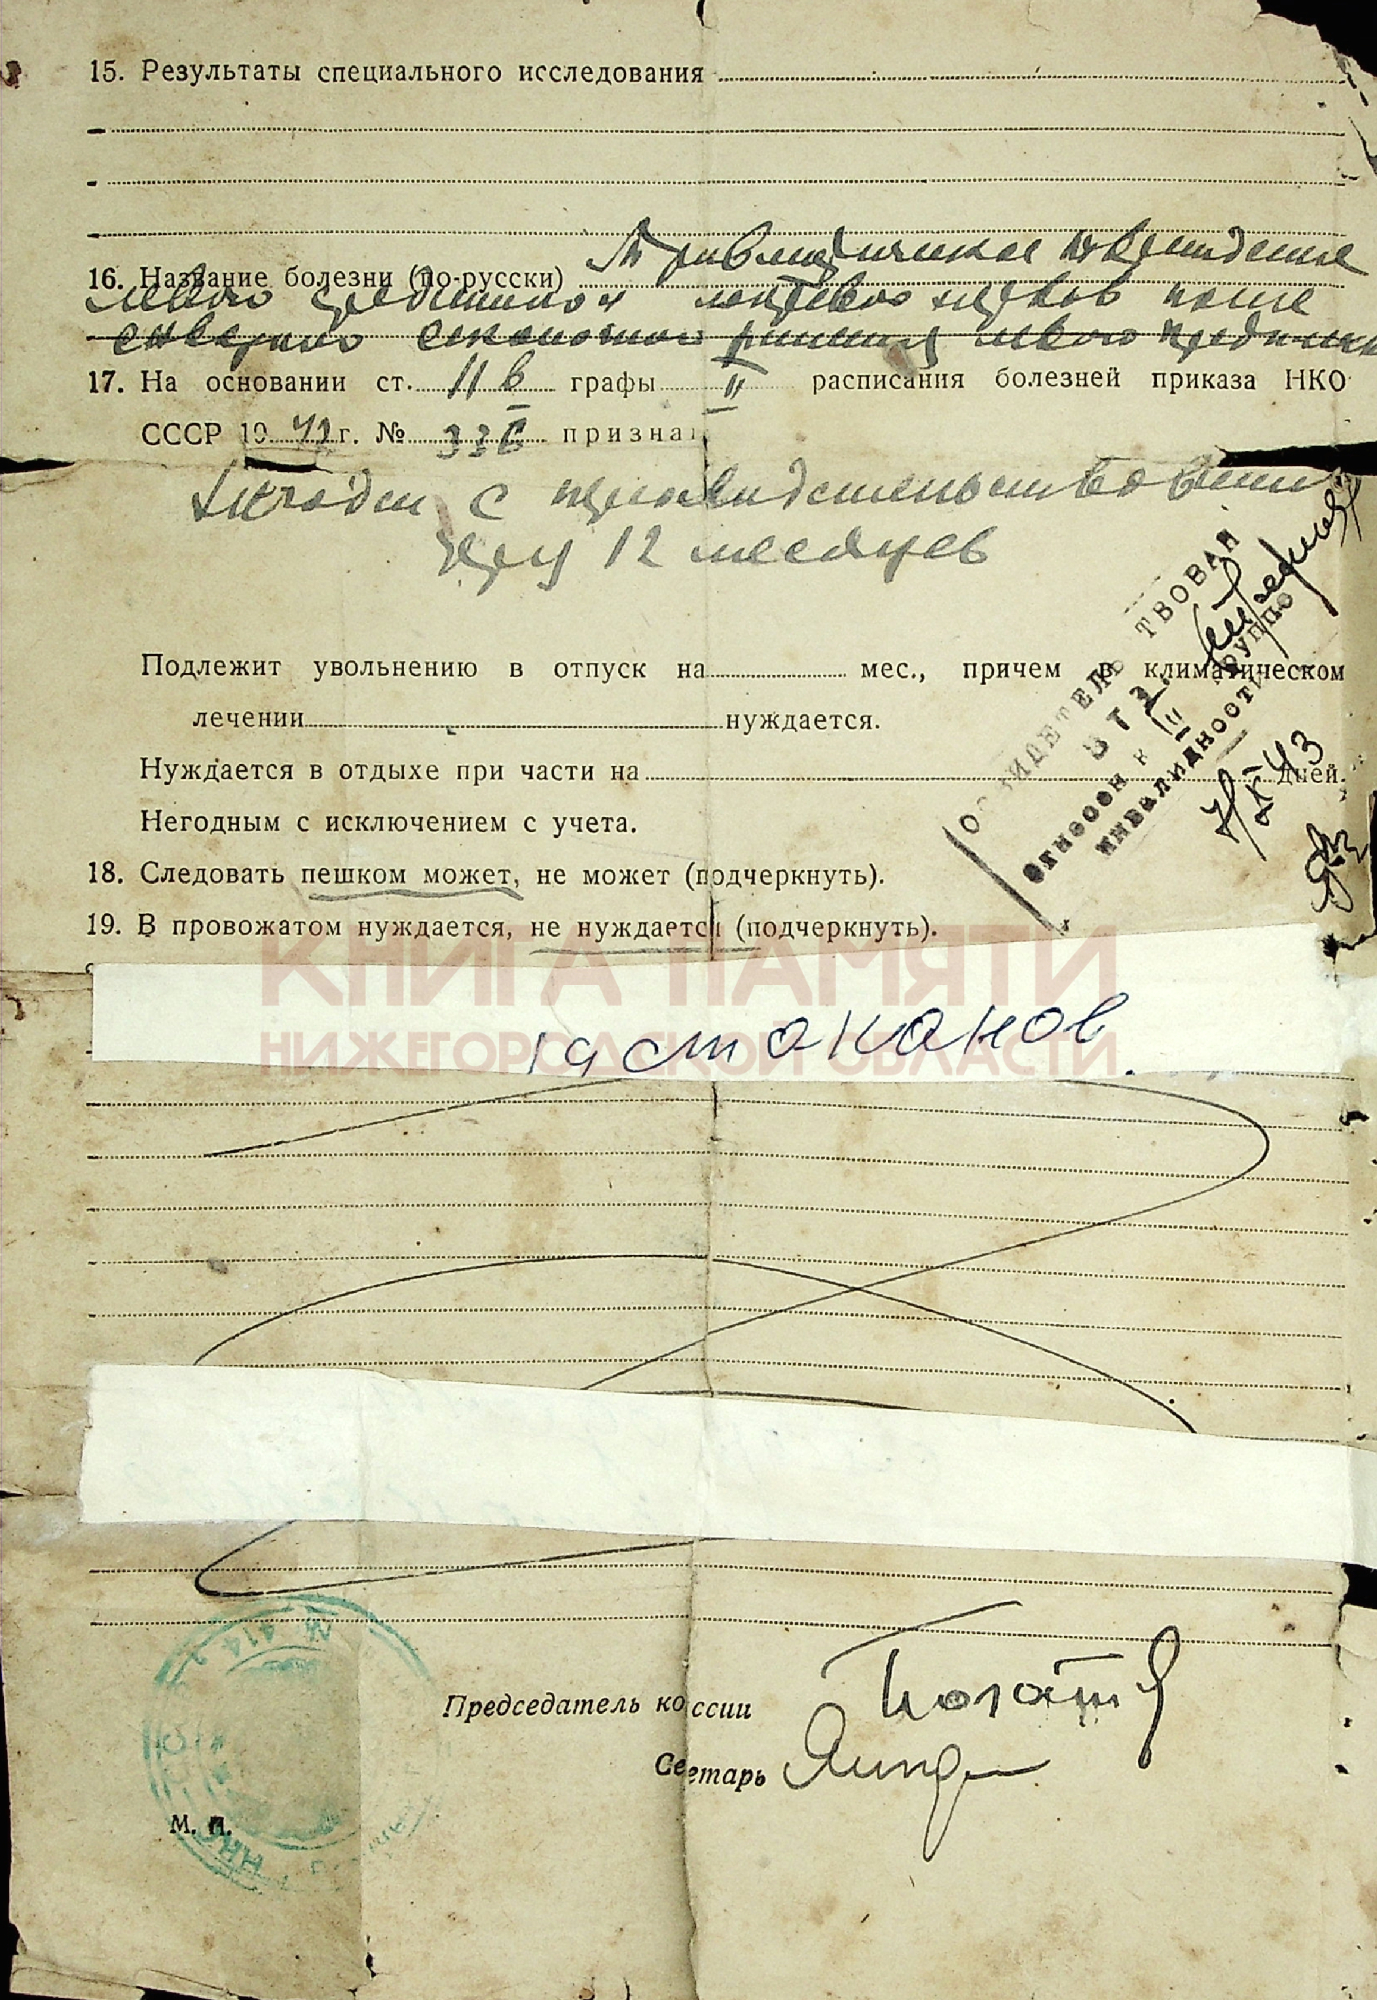 15. Результаты специального исследования
16. Название болезни (по-русски) Травматическое повреждение
левого срединного локтевого нервов после
сквозного осколочного ранения левого предплеч
17. На основании ст. 11 в графы II расписания болезней приказа НКО
СССР 1942 г. № 336 призна
с переосвидетельствованием
через 12 месяцев
ТВОВАН
ВТЭ
Отнесен к III группе
инвалидности
Подлежит увольнению в отпуск на мес., причем в климатическом
лечении нуждается.
Нуждается в отдыхе при части на дней.
43
Негодным с исключением с учета.
18. Следовать пешком может, не может (подчеркнуть).
19. В провожатом нуждается, не нуждается (подчеркнуть).
КНИГА ПАМЯТИ
НИЖЕГОРОДСКОЙ ОБЛАСТИ
№ 414
Председатель ко ссии
Се етарь
М. П.
НКО